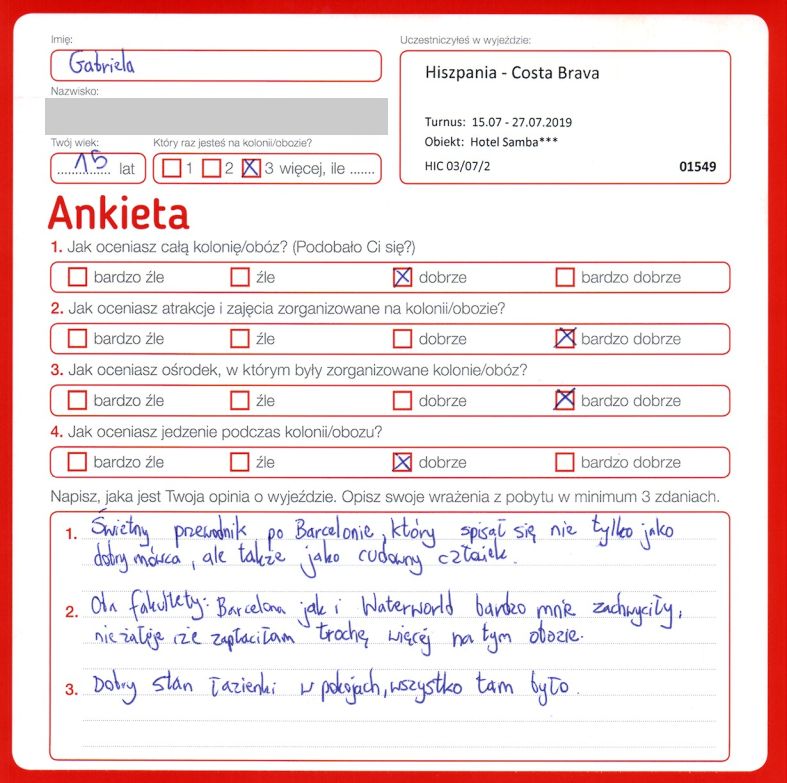 Imię:
Gabriela
Uczestniczyłeś w wyjeździe:
Hiszpania - Costa Brava
Turnus: 15.07 - 27.07.2019
Obiekt: Hotel Samba***
HIC 03/07/2 01549
Nazwisko:
Twój wiek:
15 lat
Który raz jesteś na kolonii/obozie?
1 2 3 więcej, ile .......
Ankieta
1. Jak oceniasz całą kolonię/obóz? (Podobało Ci się?)
bardzo źle źle dobrze bardzo dobrze
2. Jak oceniasz atrakcje i zajęcia zorganizowane na kolonii/obozie?
bardzo źle źle dobrze bardzo dobrze
3. Jak oceniasz ośrodek, w którym były zorganizowane kolonie/obóz?
bardzo źle źle dobrze bardzo dobrze
4. Jak oceniasz jedzenie podczas kolonii/obozu?
bardzo źle źle dobrze bardzo dobrze
Napisz, jaka jest Twoja opinia o wyjeździe. Opisz swoje wrażenia z pobytu w minimum 3 zdaniach.
1. Świetny przewodnik po Barcelonie, który spisał się nie tylko jako
dobry mówca, ale także jako cudowny człowiek.
2. Oba fakultety: Barcelona jak i Waterworld bardzo mnie zachwyciły,
nie żałuję, że zapłaciłam trochę więcej na tym obozie.
3. Dobry stan łazienki w pokojach, wszystko tam było.